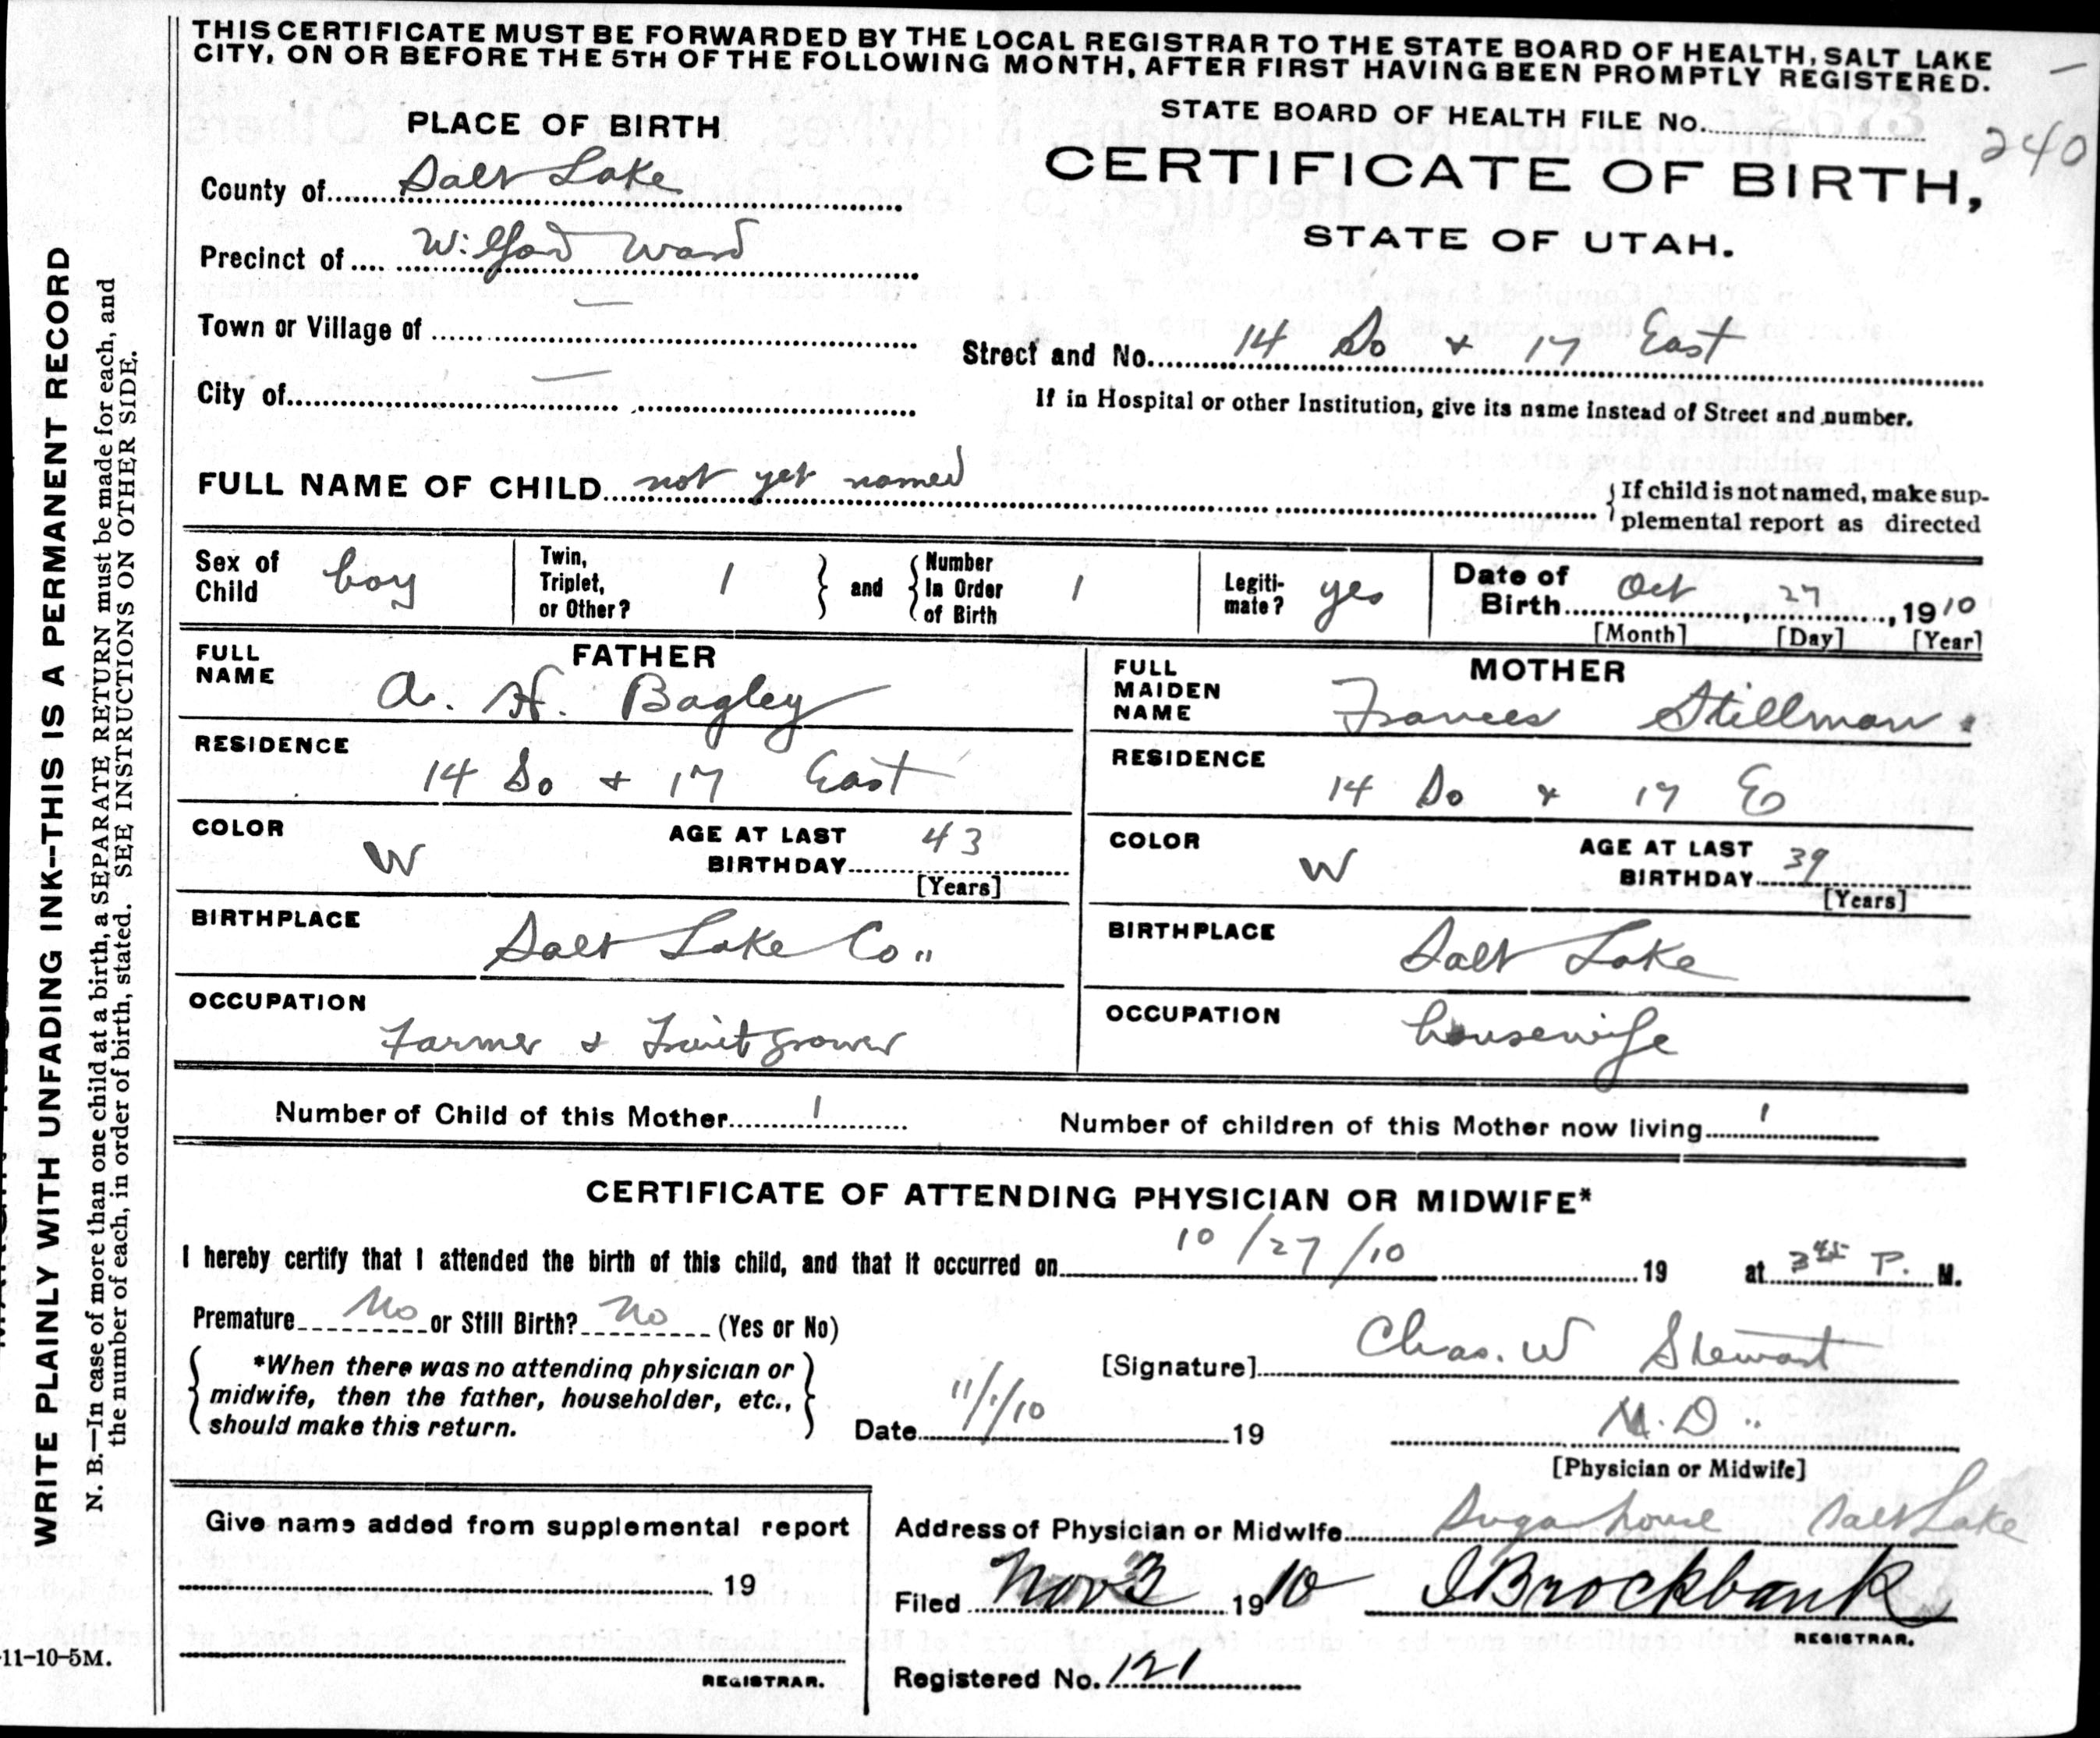 THIS CERTIFICATE MUST BE FORWARDED BY THE LOCAL REGISTRAR TO THE STATE BOARD OF HEALTH, SALT LAKE
CITY, ON OR BEFORE THE 5TH OF THE FOLLOWING MONTH, AFTER FIRST HAVING BEEN PROMPTLY REGISTERED.
PLACE OF BIRTH
STATE BOARD OF HEALTH FILE No.
240
CERTIFICATE OF BIRTH,
STATE OF UTAH.
County of Salt Lake
Precinct of Wilford Ward
Town or Village of —
Street and No. 14 So + 17 East
City of —
If in Hospital or other Institution, give its name instead of Street and number.
FULL NAME OF CHILD not yet named
If child is not named, make sup-
plemental report as directed
Sex of Child boy
Twin, Triplet, or Other? 1
and
Number In Order of Birth 1
Legiti-mate? yes
Date of Birth Oct, 27, 1910
[Month] [Day] [Year]
FATHER
FULL NAME A. H. Bagley
RESIDENCE
14 So + 17 East
COLOR W
AGE AT LAST BIRTHDAY 43
[Years]
BIRTHPLACE
Salt Lake Co"
OCCUPATION
Farmer & Fruit grower
MOTHER
FULL MAIDEN NAME Frances Stillman.
RESIDENCE
14 So + 17 E
COLOR W
AGE AT LAST BIRTHDAY 39
[Years]
BIRTHPLACE
Salt Lake
OCCUPATION
housewife
Number of Child of this Mother 1
Number of children of this Mother now living 1
CERTIFICATE OF ATTENDING PHYSICIAN OR MIDWIFE*
I hereby certify that I attended the birth of this child, and that it occurred on 10/27/10 19 at 3 45 P. M.
Premature No or Still Birth? No (Yes or No)
*When there was no attending physician or
midwife, then the father, householder, etc.,
should make this return.
[Signature] Chas. W Stewart
Date 11/1/10 19
M.D..
[Physician or Midwife]
Give name added from supplemental report
19
REGISTRAR.
Address of Physician or Midwife Sugar house Salt Lake
Filed Nov 3 1910 JBrockbank
REGISTRAR.
Registered No. 121
WRITE PLAINLY WITH UNFADING INK--THIS IS A PERMANENT RECORD
N. B.—In case of more than one child at a birth, a SEPARATE RETURN must be made for each, and
the number of each, in order of birth, stated. SEE INSTRUCTIONS ON OTHER SIDE.
11-10-5M.